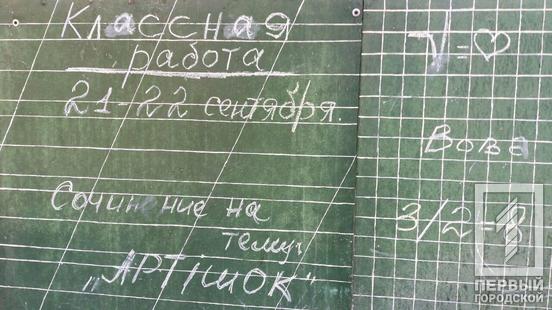 Классная
работа
21-22 сентября.
Сочинение на
тему:
„АРТіШОК"
√=♡
Вове
3/2-8
ПЕРВЫЙ
ГОРОДСКОЙ